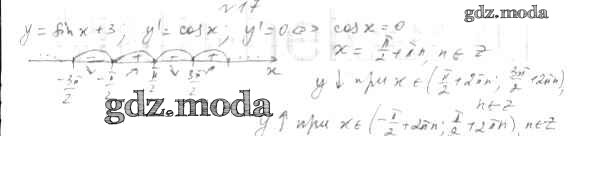 №17
gdz.moda
y = sin x + 3; y' = cos x; y' = 0 ⇔ cos x = 0
x = π/2 + πn, n ∈ Z
− + − +
-3π/2 -π/2 π/2 3π/2 x
y ↓ при x ∈ (π/2 + 2πn; 3π/2 + 2πn),
n ∈ Z
gdz.moda
y ↑ при x ∈ (-π/2 + 2πn; π/2 + 2πn), n ∈ Z